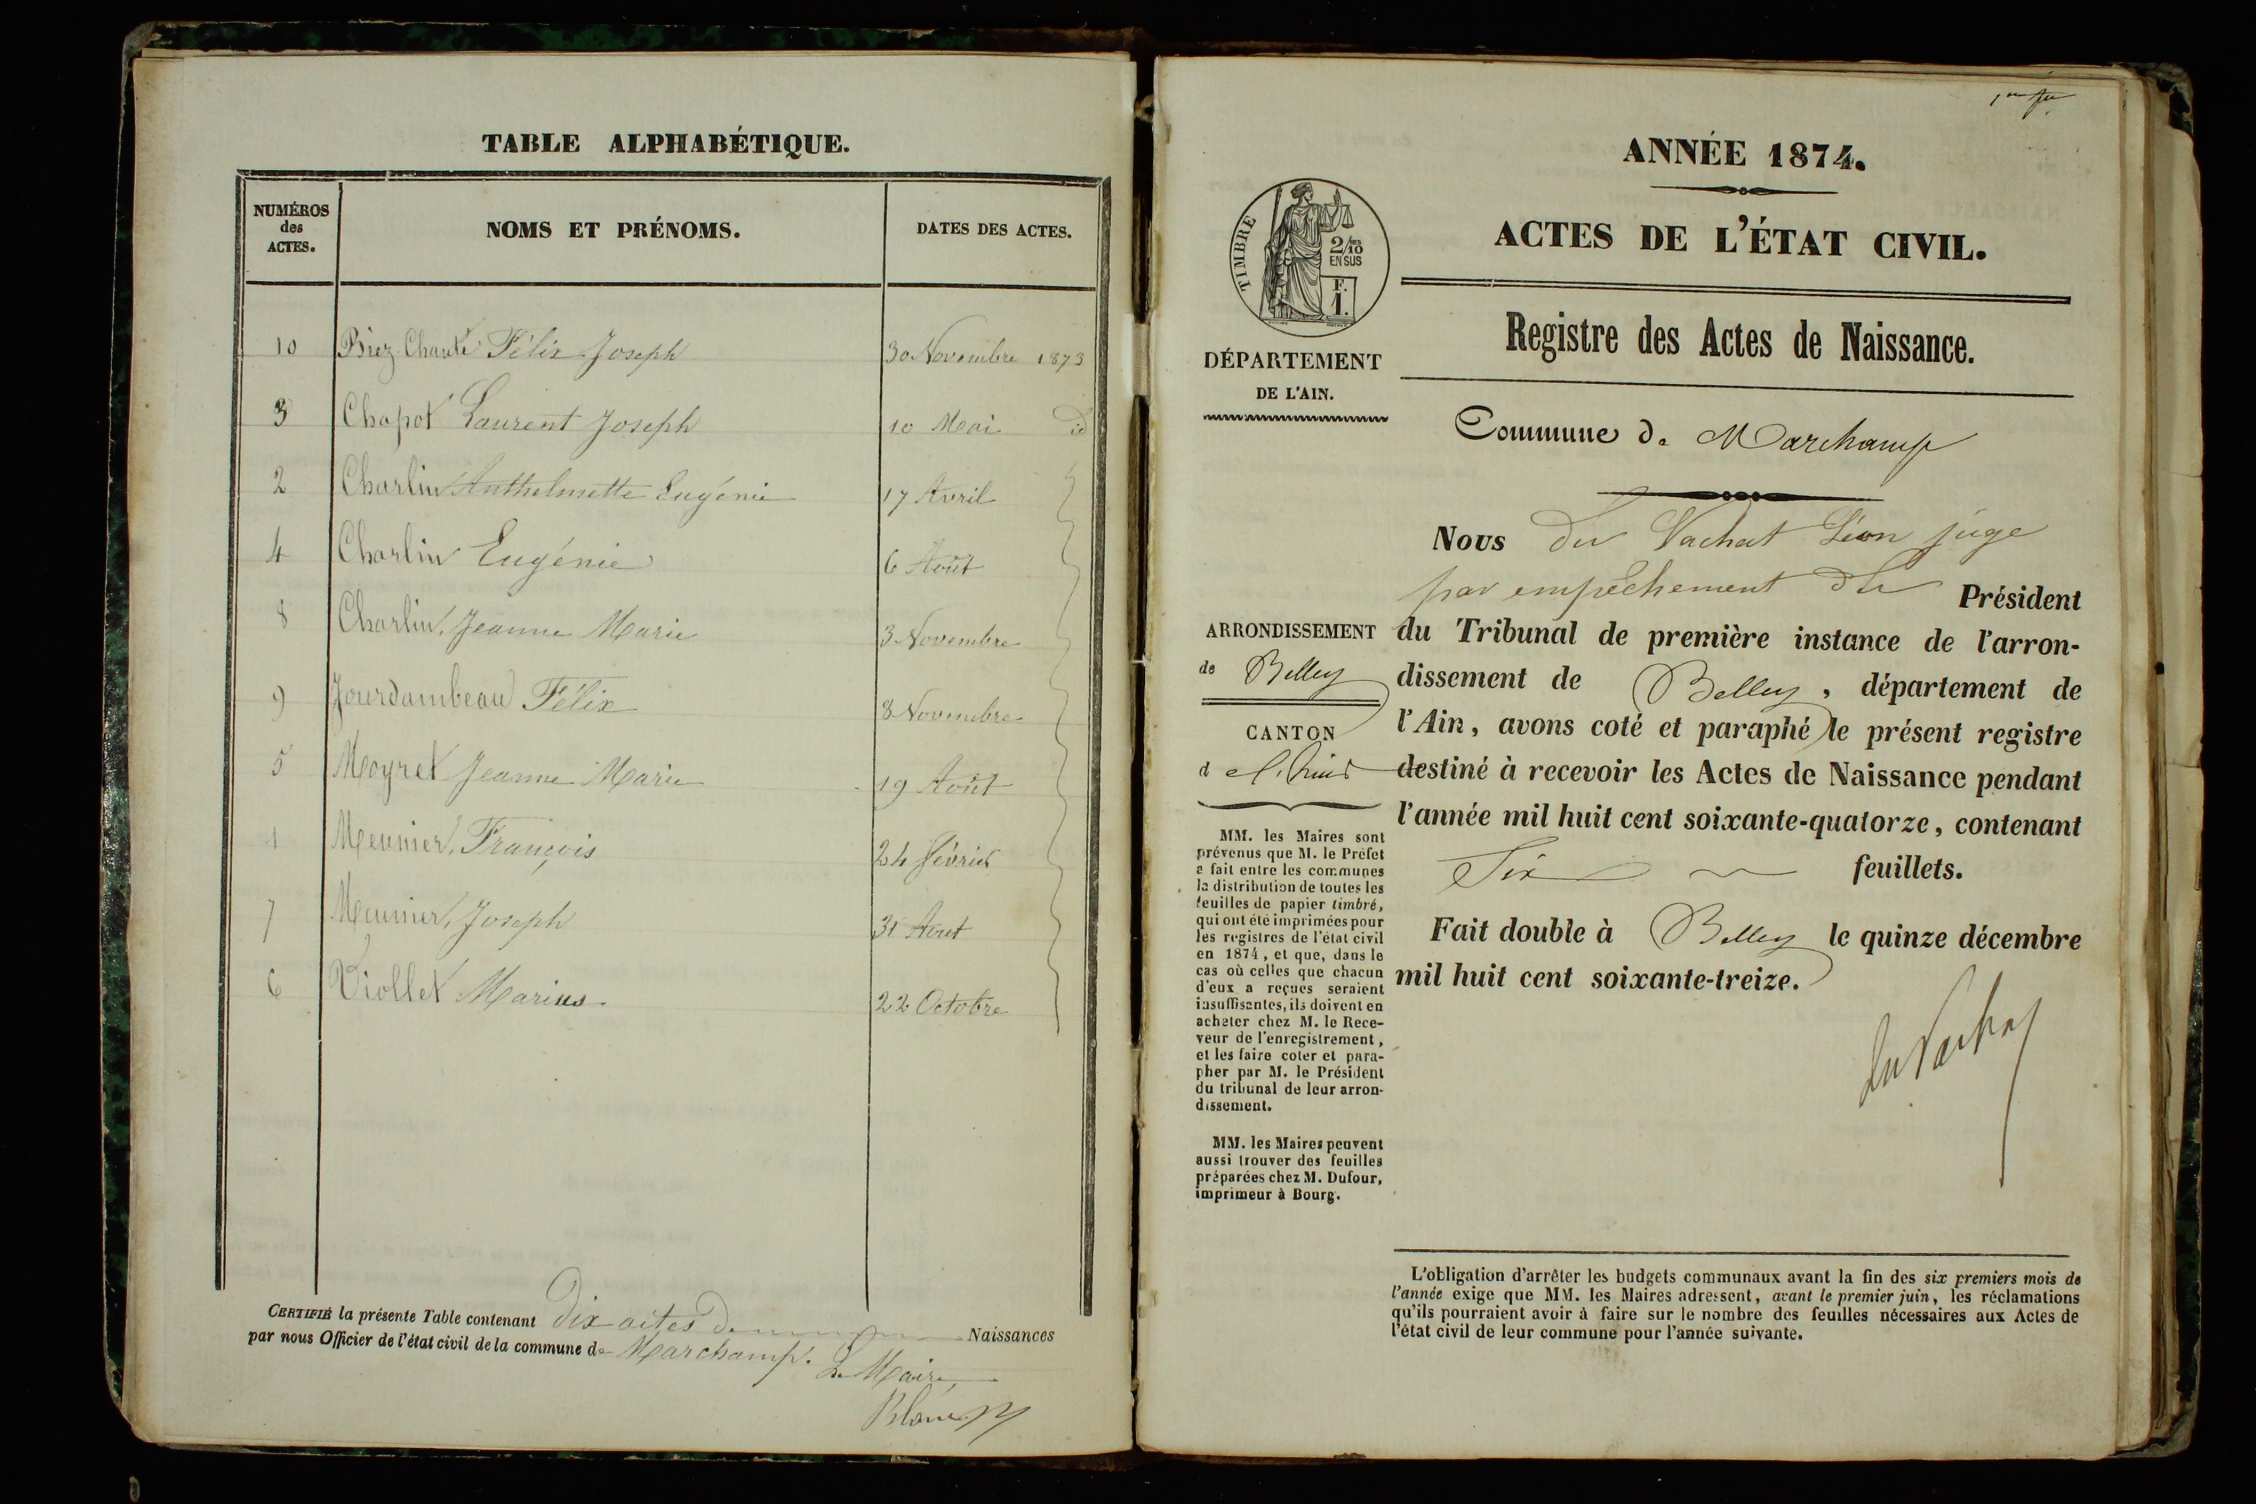 TABLE ALPHABÉTIQUE.
NUMÉROS des ACTES. NOMS ET PRÉNOMS. DATES DES ACTES.
10 Félix Joseph 30 Novembre 1873
3 Chapot Laurent Joseph 10 Mai id
2 Charlin Anthelmette Eugénie 17 Avril
4 Charlin Eugénie 6 Août
8 Charlin, Jeanne Marie 3 Novembre
9 Jourdambeau Félix 8 Novembre
5 Moyret Jeanne Marie 19 Août
1 Meunier, François 24 Février
7 Meunier, Joseph 31 Aout
6 Viollet Marius 22 Octobre
CERTIFIÉ la présente Table contenant Dix actes de Naissances
par nous Officier de l'état civil de la commune de Marchamp.
Le Maire,
ANNÉE 1874.
ACTES DE L'ÉTAT CIVIL.
TIMBRE
2/10 EN SUS
F. 1.
Registre des Actes de Naissance.
DÉPARTEMENT
DE L'AIN.
Commune de Marchamp
Nous Du Vachat Léon juge
par empêchement du Président
du Tribunal de première instance de l'arron-
dissement de Belley, département de
l'Ain, avons coté et paraphé le présent registre
destiné à recevoir les Actes de Naissance pendant
l'année mil huit cent soixante-quatorze, contenant
Six feuillets.
Fait double à Belley le quinze décembre
mil huit cent soixante-treize.
Du Vachat
ARRONDISSEMENT
de Belley
CANTON
d
MM. les Maires sont
prévenus que M. le Préfet
a fait entre les communes
la distribution de toutes les
feuilles de papier timbré,
qui ont été imprimées pour
les registres de l'état civil
en 1874, et que, dans le
cas où celles que chacun
d'eux a reçues seraient
insuffisantes, ils doivent en
acheter chez M. le Rece-
veur de l'enregistrement,
et les faire coter et para-
pher par M. le Président
du tribunal de leur arron-
dissement.
MM. les Maires peuvent
aussi trouver des feuilles
préparées chez M. Dufour,
imprimeur à Bourg.
L'obligation d'arrêter les budgets communaux avant la fin des six premiers mois de
l'année exige que MM. les Maires adressent, avant le premier juin, les réclamations
qu'ils pourraient avoir à faire sur le nombre des feuilles nécessaires aux Actes de
l'état civil de leur commune pour l'année suivante.